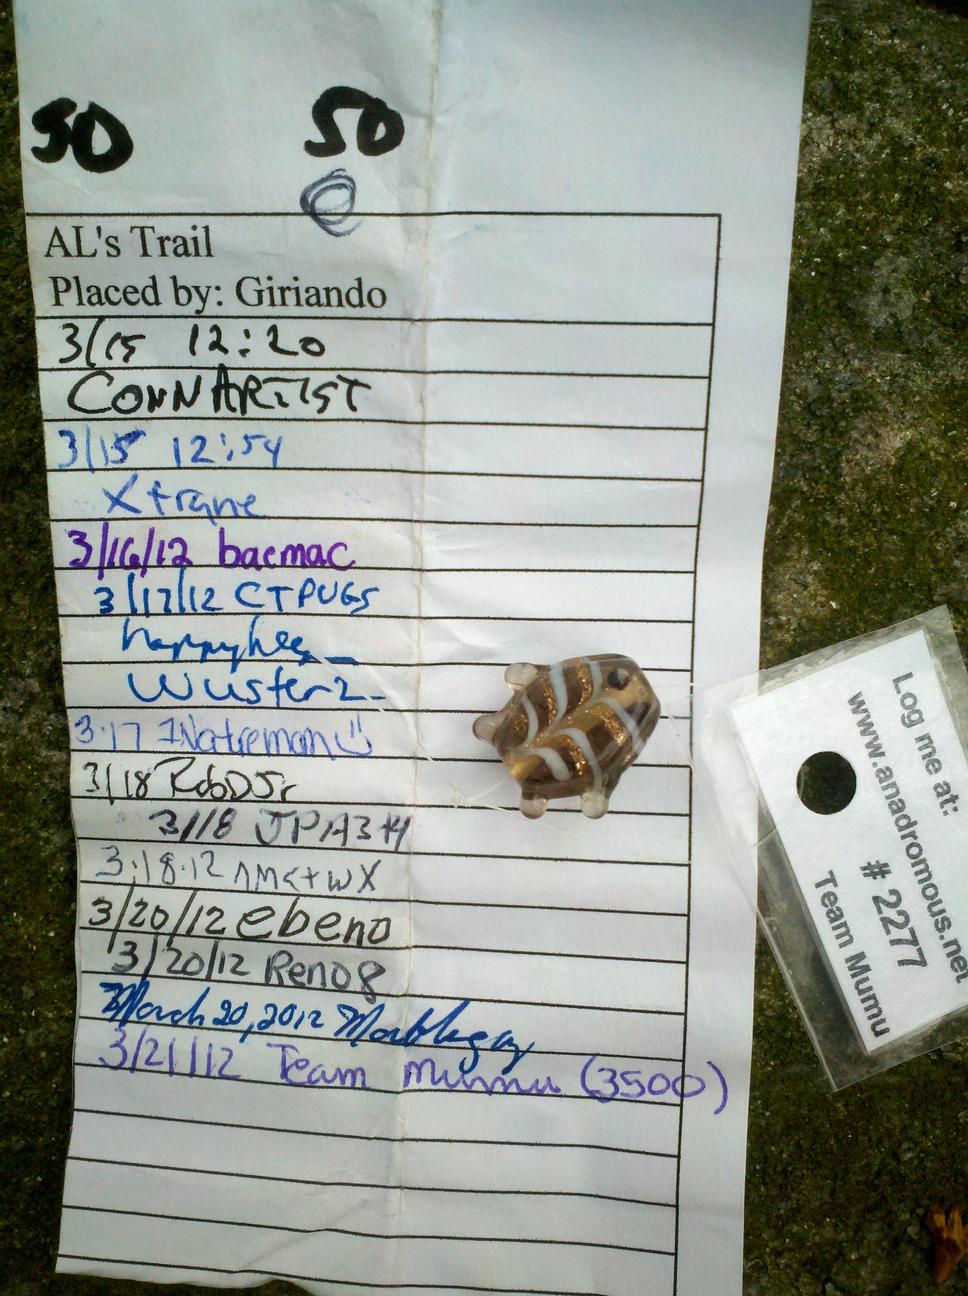 50 50
AL's Trail
Placed by: Giriando
3/15 12:20
CONNARTIST
3/15 12:54
Xtrane
3/16/12 bacmac
3/17/12 CTPUGS
Wuster2
3.17 Natureman
3/18 RobDJr
3/18 JPA344
3.18.12
3/20/12 ebeno
3/20/12 Reno8
March 20, 2012 Marbleguy
3/21/12 Team Mumu (3500)
Log me at:
www.anadromous.net
# 2277
Team Mumu